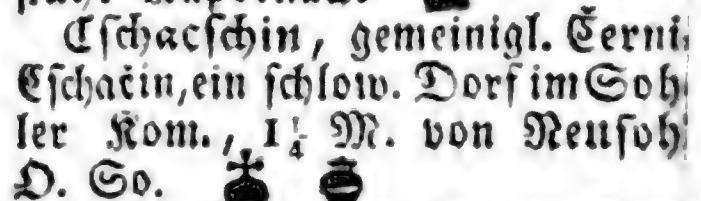 Cſchacſchin, gemeinigl. Černi,
Cſchačin, ein ſchlow. Dorf im Soh
ler Kom., 1¼ M. von Neuſoh
O. So.